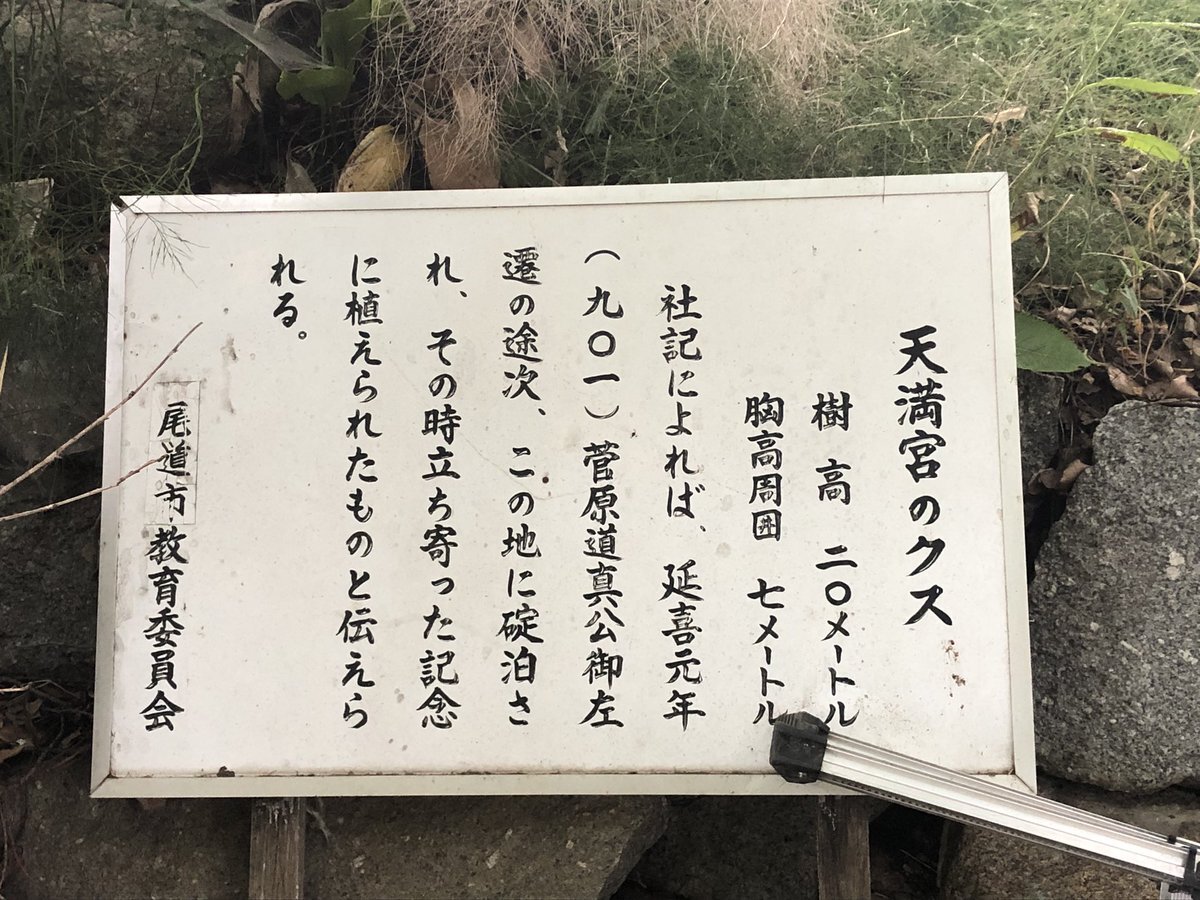 天満宮のクス
樹高 二〇メートル
胸高周囲 七メートル
社記によれば、延喜元年
(九〇一)菅原道真公御左
遷の途次、この地に碇泊さ
れ、その時立ち寄った記念
に植えられたものと伝えら
れる。
尾道市教育委員会